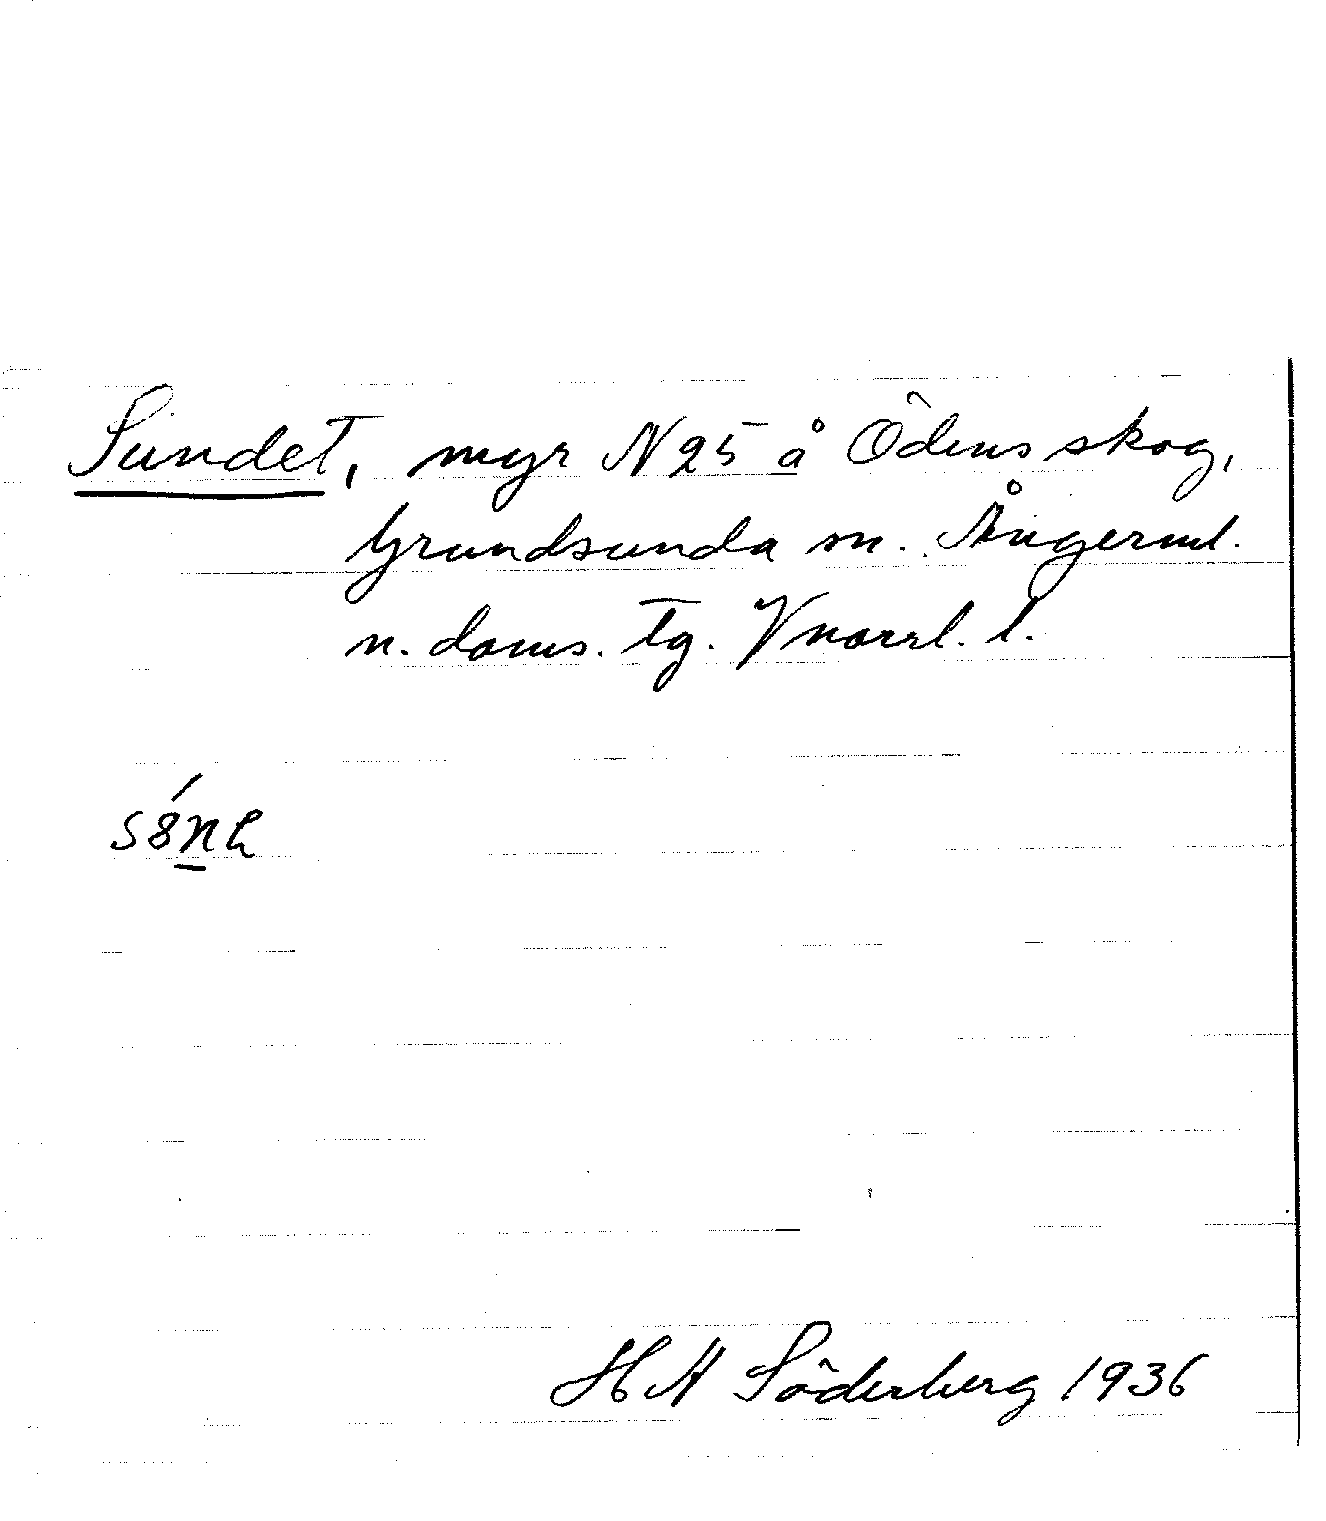 Sundet, myr N 25 å Ödens skog,
Grundsunda sn. Ångerml.
n. doms. tg. Vnorrl. l.
H A Söderberg 1936